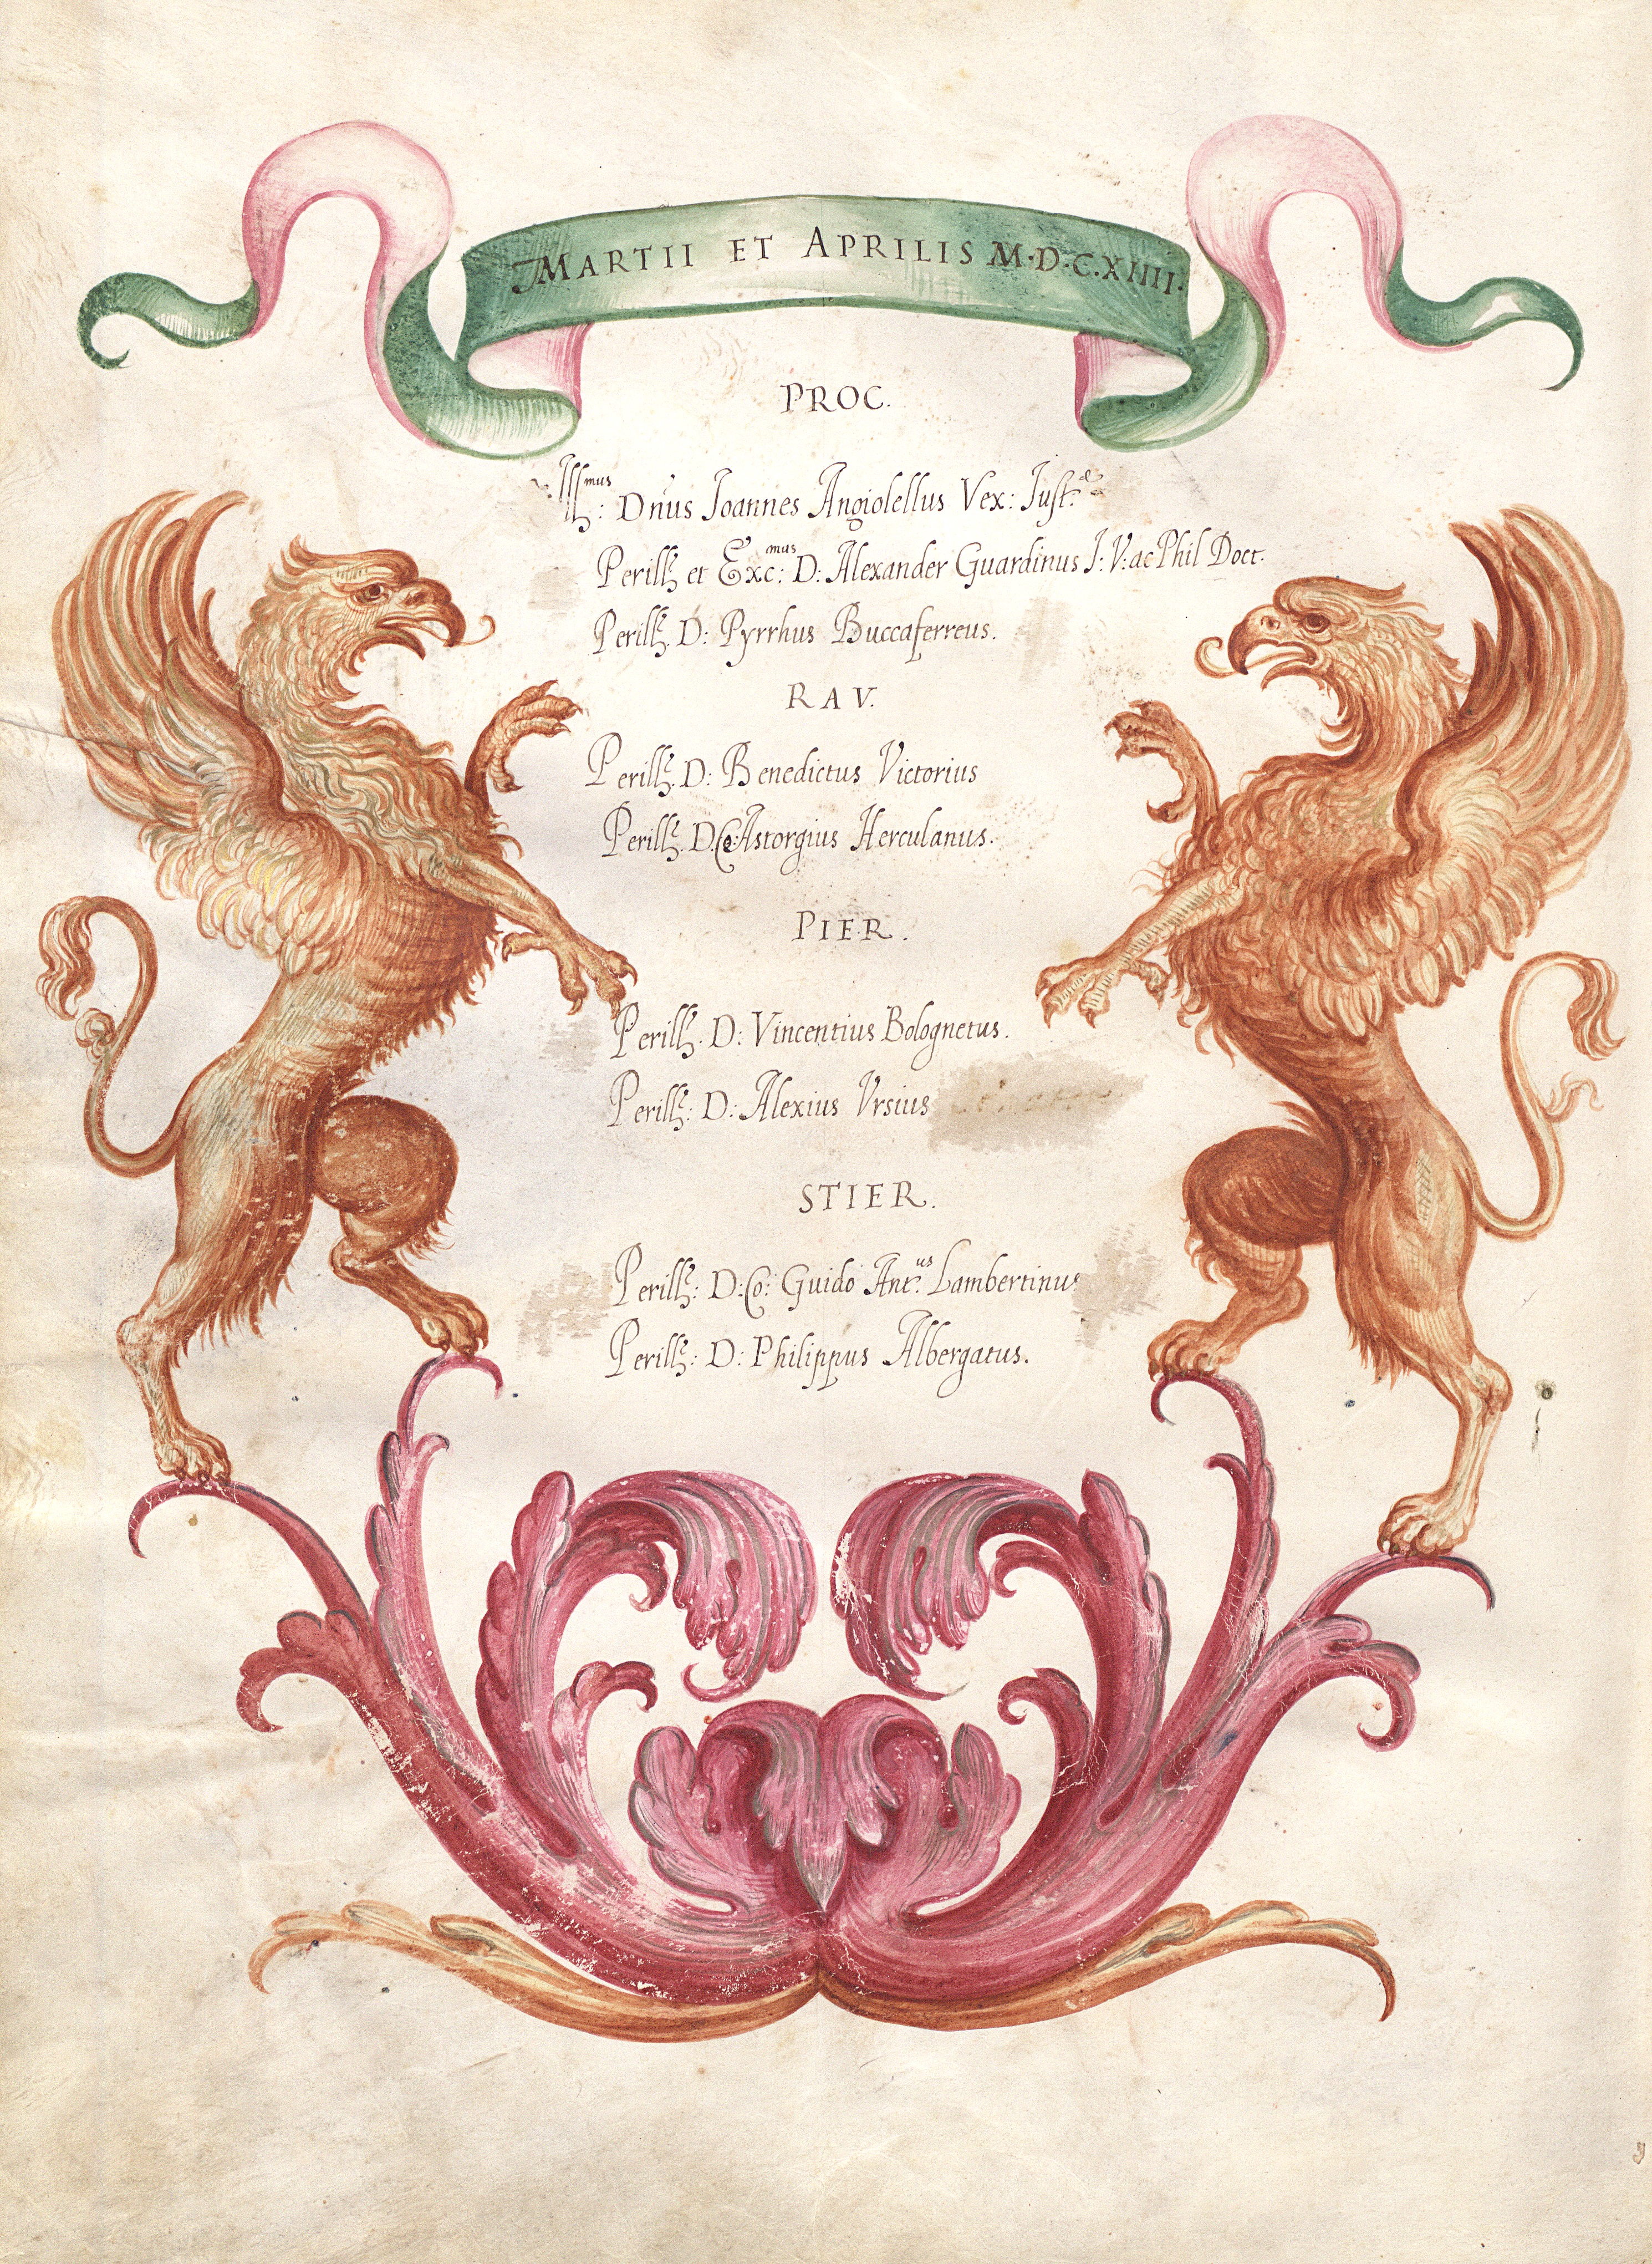 MARTII ET APRILIS M·D·C·XIIII·
PROC.
Ill:mus Dnus Joannes Angiolellus Vex: Just:
Perill; et Exc:mus D: Alexander Guardinus J: V: ac Phil Doct.
Perill; D: Pyrrhus Buccaferreus.
RAV.
Perill; D: Benedictus Victorius
Perill; D. Co: Astorgius Herculanus.
PIER.
Perill; D: Vincentius Bolognetus.
Perill; D: Alexius Vrsius
STIER.
Perill; D: Co: Guido Ant:us Lambertinus
Perill; D: Philippus Albergatus.